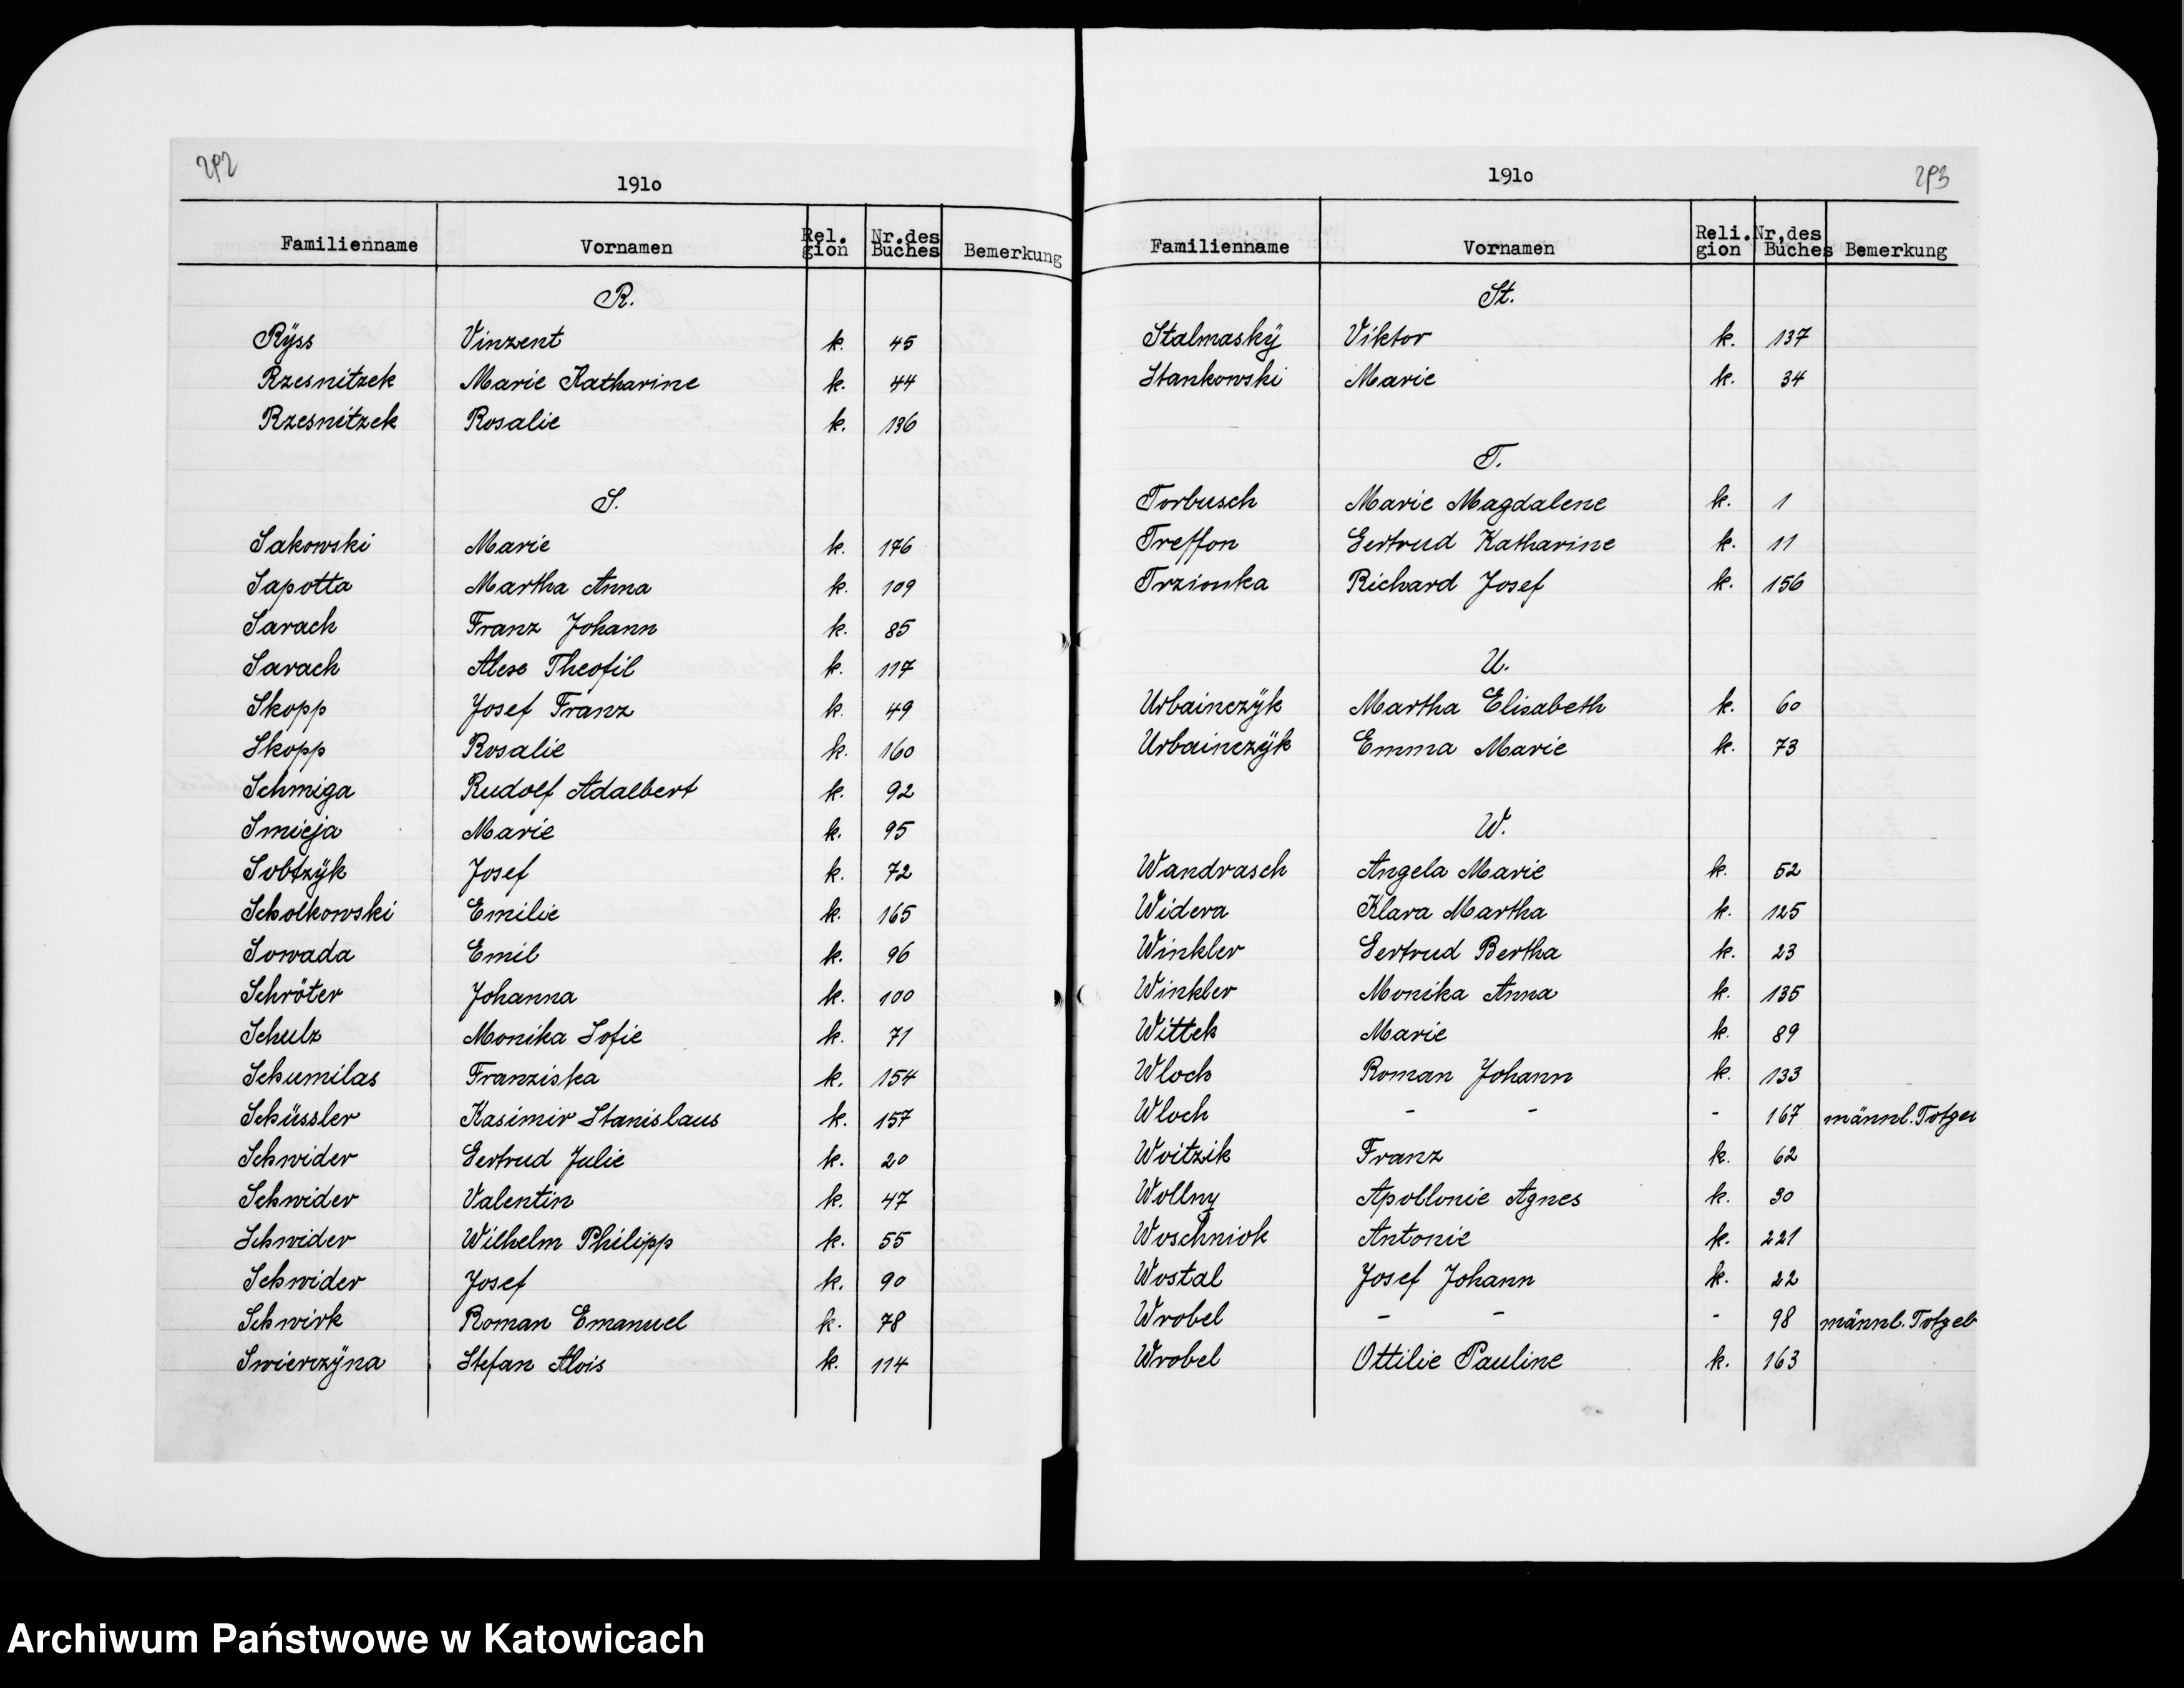 292
1910
Familienname Vornamen Rel.gion Nr.des Buches Bemerkung
R.
Rÿss Vinzent k. 45
Rzesnitzek Marie Katharine k. 44
Rzesnitzek Rosalie k. 136
S.
Sakowski Marie k. 176
Sapotta Martha Anna k. 109
Sarach Franz Johann k. 85
Sarach Alex Theofil k. 117
Skopp Josef Franz k. 49
Skopp Rosalie k. 160
Schmiga Rudolf Adalbert k. 92
Smieja Marie k. 95
Sobtzÿk Josef k. 72
Scholkowski Emilie k. 165
Sowada Emil k. 96
Schröter Johanna k. 100
Schulz Monika Sofie k. 71
Schumilas Franziska k. 154
Schüssler Kasimir Stanislaus k. 157
Schwider Gertrud Julie k. 20
Schwider Valentin k. 47
Schwider Wilhelm Philipp k. 55
Schwider Josef k. 90
Schwirk Roman Emanuel k. 78
Swierczÿna Stefan Alois k. 114
1910
293
Familienname Vornamen Reli.gion Nr,des Buches Bemerkung
St.
Stalmaskÿ Viktor k. 137
Stankowski Marie k. 34
T.
Torbusch Marie Magdalene k. 1
Treffon Gertrud Katharine k. 11
Trzionka Richard Josef k. 156
U.
Urbainczÿk Martha Elisabeth k. 60
Urbainczÿk Emma Marie k. 73
W.
Wandrasch Angela Marie k. 52
Widera Klara Martha k. 125
Winkler Gertrud Bertha k. 23
Winkler Monika Anna k. 135
Wittek Marie k. 89
Wloch Roman Johann k. 133
Wloch - - - 167 männl. Totge
Woitzik Franz k. 62
Wollny Apollonie Agnes k. 30
Woschniok Antonie k. 221
Wostal Josef Johann k. 22
Wrobel - - - 98 männl. Totgeb
Wrobel Ottilie Pauline k. 163
Archiwum Państwowe w Katowicach